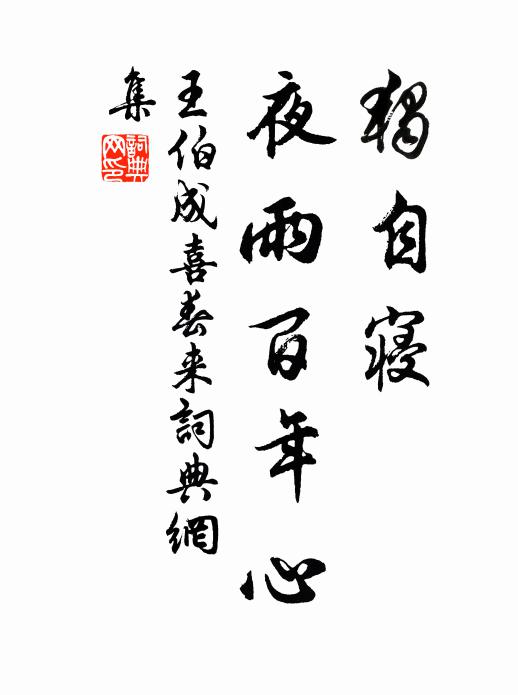 獨自寢
夜雨百年心
王伯成喜春来詞典網
集
詞典
网印